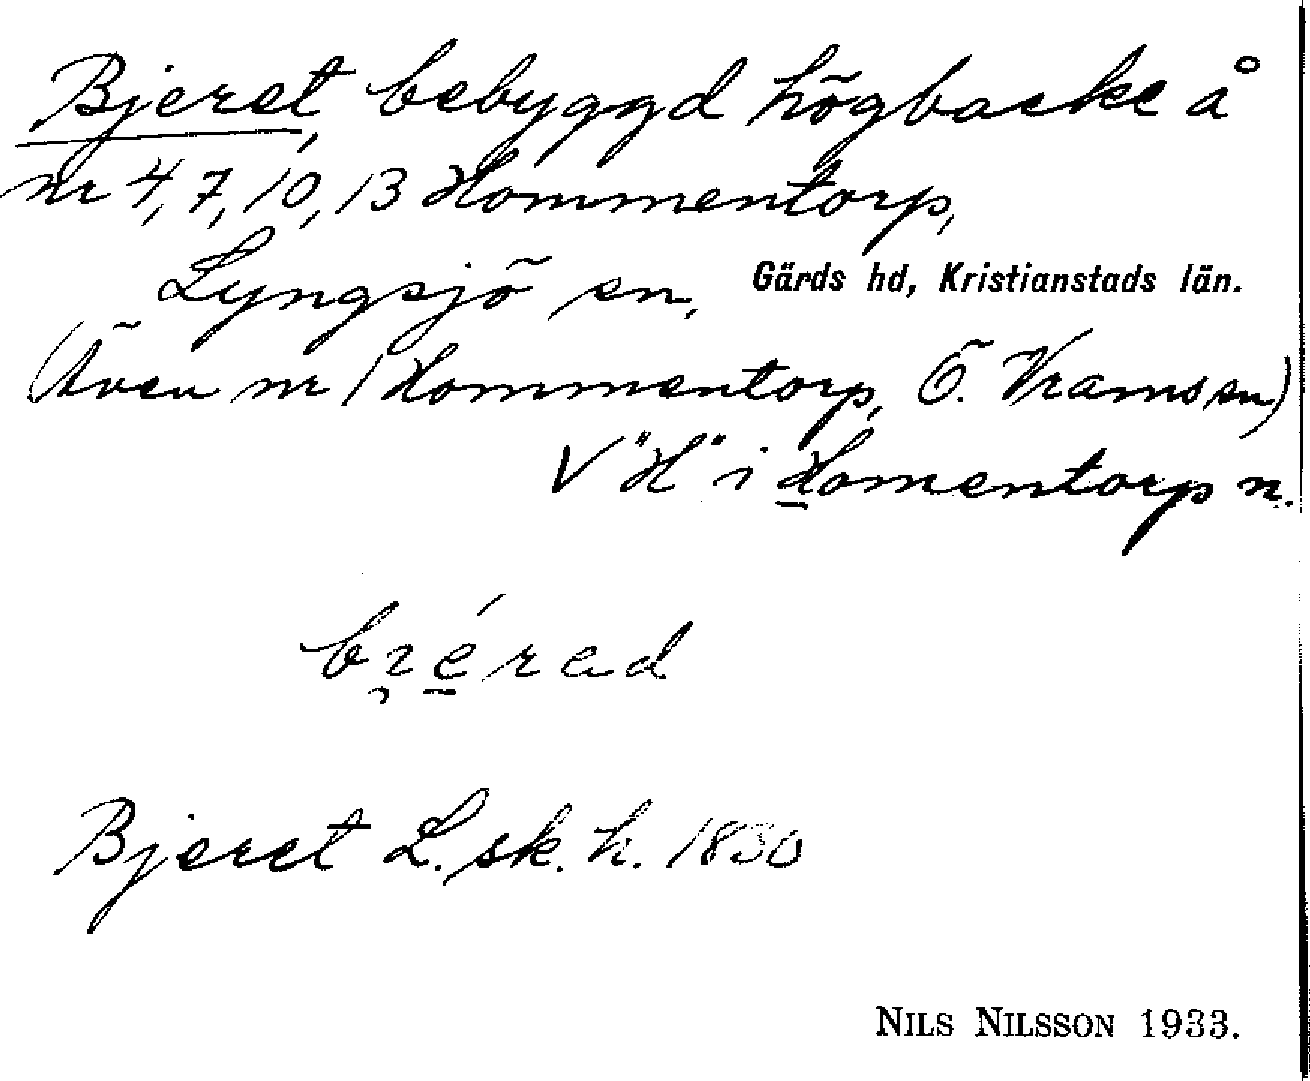 Bjeret, bebyggd högbacke å
nr 4, 7, 10, 13 Hommentorp,
Lyngsjö sn, Gärds hd, Kristianstads län.
(Även nr 1 Hommentorp, Ö. Vrams sn)
V "H" i Homentorp n.
Bjeret L. sk. h. 1830
NILS NILSSON 1933.